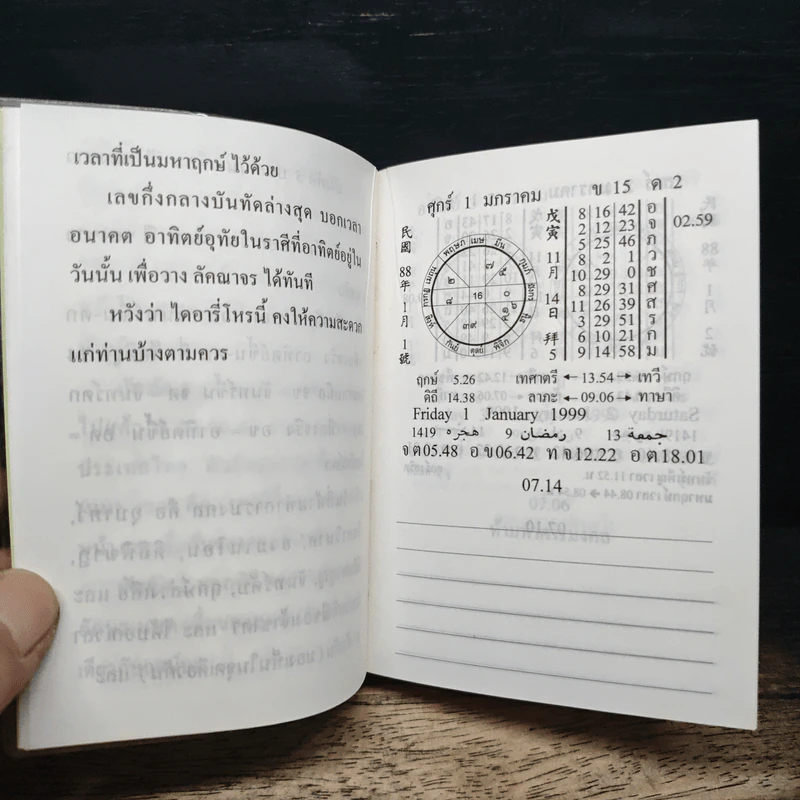 เวลาที่เป็นมหาฤกษ์ ไว้ด้วย
เลขกึ่งกลางบันทัดล่างสุด บอกเวลา
อนาคต อาทิตย์อุทัยในราศีที่อาทิตย์อยู่ใน
วันนั้น เพื่อวาง ลัคณาจร ได้ทันที
หวังว่า ไดอารี่โหรนี้ คงให้ความสะดวก
แก่ท่านบ้างตามควร
ศุกร์ 1 มกราคม ข 15 ด 2
民國 88 年 1 月 1 號
พฤษภ เมษ มีน กุมภ์ มังกร ธนู พิจิก ตุลย์ กันย์ สิงห์ กรกฎ เมถุน
16
戊寅 11 月 14 日 拜 5
8 16 42 อ
2 12 23 จ 02.59
5 25 46 ภ
8 2 1 ว
10 29 0 ช
8 29 31 ศ
11 26 39 ส
3 29 51 ร
6 10 21 ก
9 14 58 ม
ฤกษ์ 5.26 เทศาตรี ←13.54→ เทวี
ดิถี 14.38 ลาภะ ←09.06→ ทาษา
Friday 1 January 1999
1419 هجره 9 رمضان 13 جمعة
จ ต05.48 อ ข06.42 ท จ12.22 อ ต18.01
07.14